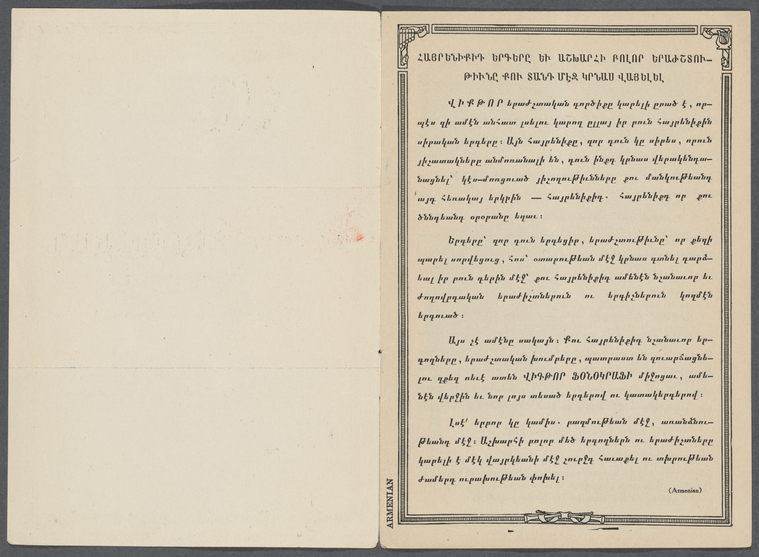 ՀԱՅՐԵՆԻՔԻԴ ԵՐԳԵՐԸ ԵՒ ԱՇԽԱՐՀԻ ԲՈԼՈՐ ԵՐԱԺՇՏՈՒ-
ԹԻՒՆԸ ՔՈՒ ՏԱՆԴ ՄԷՋ ԿՐՆԱՍ ՎԱՅԵԼԵԼ
ՎԻՔԹՈՐ երաժշտական գործիքը կարելի ըրած է, որ-
պէս զի ամէն անհատ լսելու կարող ըլլայ իր բուն հայրենիքին
սիրական երգերը։ Այն հայրենիքը, զոր դուն կը սիրես, որուն
յիշատակները անմոռանալի են, դուն ինքդ կրնաս վերակենդա-
նացնել՝ կէս-մոռցուած յիշողութիւնները քու մանկութեանդ
այդ հեռակայ երկրին — հայրենիքիդ. հայրենիքդ որ քու
ծննդեանդ օրօրանը եղաւ։
Երգերը՝ զոր դուն երգեցիր, երաժշտութիւնը՝ որ քեզի
պարել սորվեցուց, հոս՝ օտարութեան մէջ կրնաս գտնել դարձ-
եալ իր բուն դերին մէջ՝ քու հայրենիքիդ ամենէն նշանաւոր եւ
ժողովրդական երաժիշտներուն ու երգիչներուն կողմէն
երգուած։
Այս չէ ամէնը սակայն։ Քու հայրենիքիդ նշանաւոր եր-
գողները, երաժշտական խումբերը, պատրաստ են զուարճացնե-
լու զքեզ ոեւէ ատեն ՎԻԳԹՈՐ ՖՕՆՕԿՐԱՖԻ միջոցաւ, ամե-
նէն վերջին եւ նոր լոյս տեսած երգերով ու կատակերգերով։
Լսէ՛ երբոր կը կամիս. բազմութեան մէջ, առանձնու-
թեանդ մէջ։ Աշխարհի բոլոր մեծ երգողներն ու երաժիշտները
կարելի է մէկ վայրկեանի մէջ շուրջդ հաւաքել ու տխրութեան
ժամերդ ուրախութեան փոխել։
(Armenian)
ARMENIAN